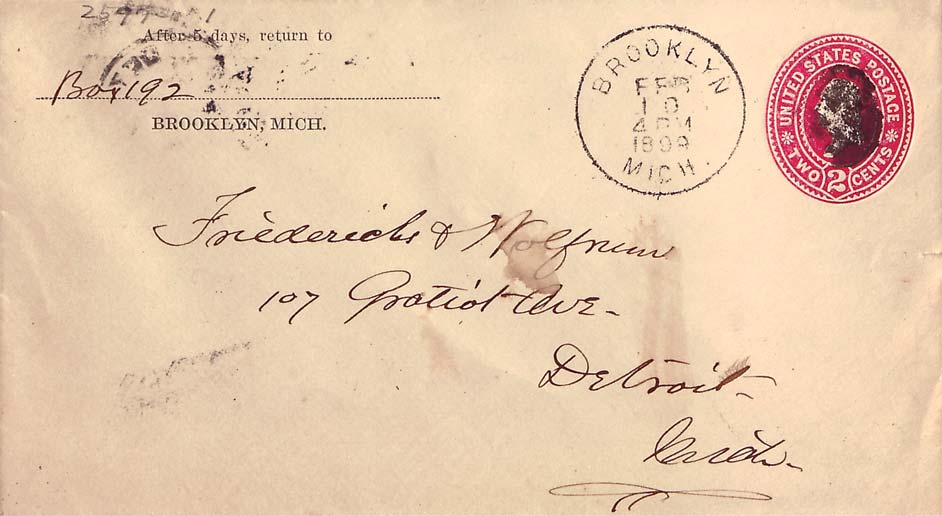 After 5 days, return to
Box 192
BROOKLYN, MICH.
BROOKLYN
FEB
10
4 PM
1899
MICH.
UNITED STATES POSTAGE
TWO 2 CENTS
Friederichs & Wolfrum
107 Gratiot Ave-
Detroit-
Mich-